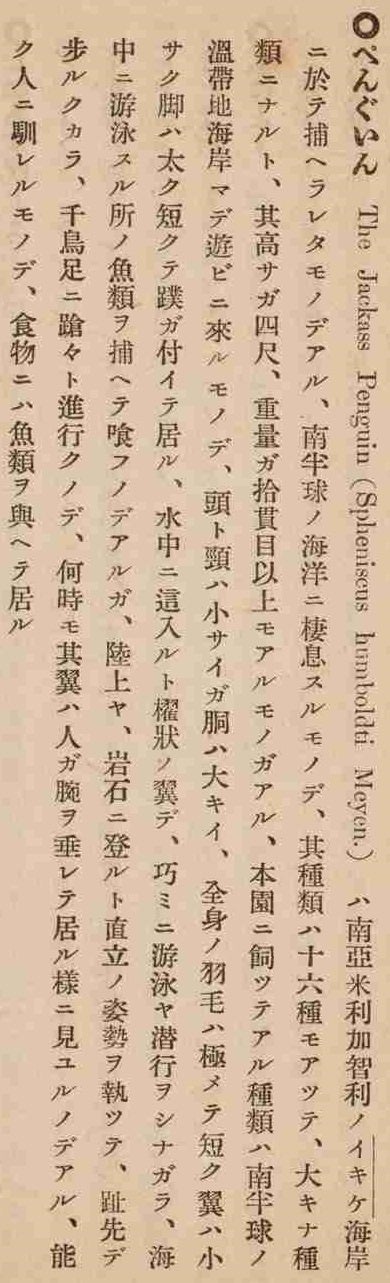 ○ぺんぐいん The Jackass Penguin (Spheniscus humboldti Meyen.) ハ南亞米利加智利ノイキケ海岸
ニ於テ捕ヘラレタモノデアル、南半球ノ海洋ニ棲息スルモノデ、其種類ハ十六種モアツテ、大キナ種
類ニナルト、其高サガ四尺、重量ガ拾貫目以上モアルモノガアル、本園ニ飼ツテアル種類ハ南半球ノ
溫帶地海岸マデ遊ビニ來ルモノデ、頭ト頸ハ小サイガ胴ハ大キイ、全身ノ羽毛ハ極メテ短ク翼ハ小
サク脚ハ太ク短クテ蹼ガ付イテ居ル、水中ニ這入ルト櫂狀ノ翼デ、巧ミニ游泳ヤ潜行ヲシナガラ、海
中ニ游泳スル所ノ魚類ヲ捕ヘテ喰フノデアルガ、陸上ヤ、岩石ニ登ルト直立ノ姿勢ヲ執ツテ、趾先デ
步ルクカラ、千鳥足ニ蹌々ト進行クノデ、何時モ其翼ハ人ガ腕ヲ垂レテ居ル樣ニ見ユルノデアル、能
ク人ニ馴レルモノデ、食物ニハ魚類ヲ與ヘテ居ル